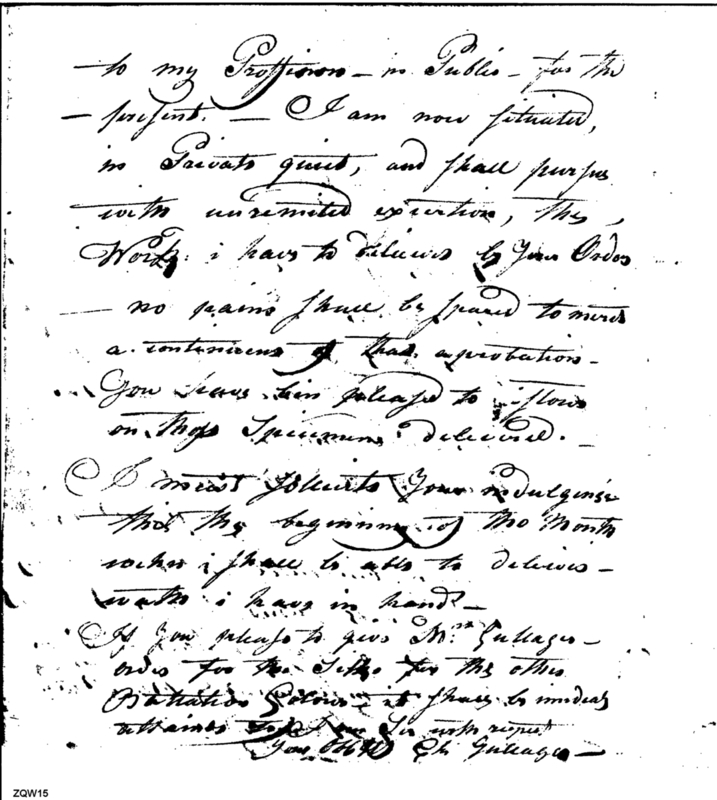 to my Proffision – in Public – for the
– present. – I am now situated,
in Private quiet, and shall pursue
with unremited exertion, the,
Work: i have to deliever by Your Order
– no pains shall be spared to merit
a continiens of that aprobation –
You have bin pleased to
on those Specimens delivered. –
I must Your indulgense
till the beginning of the Month
when i shall be able to deliver –
i have in hand –
If You please to give Mr. Gullager –
order for the for the other
Battalion Colours it shall be
I am Sir with respect
Your Ch Gullager –
ZQW15